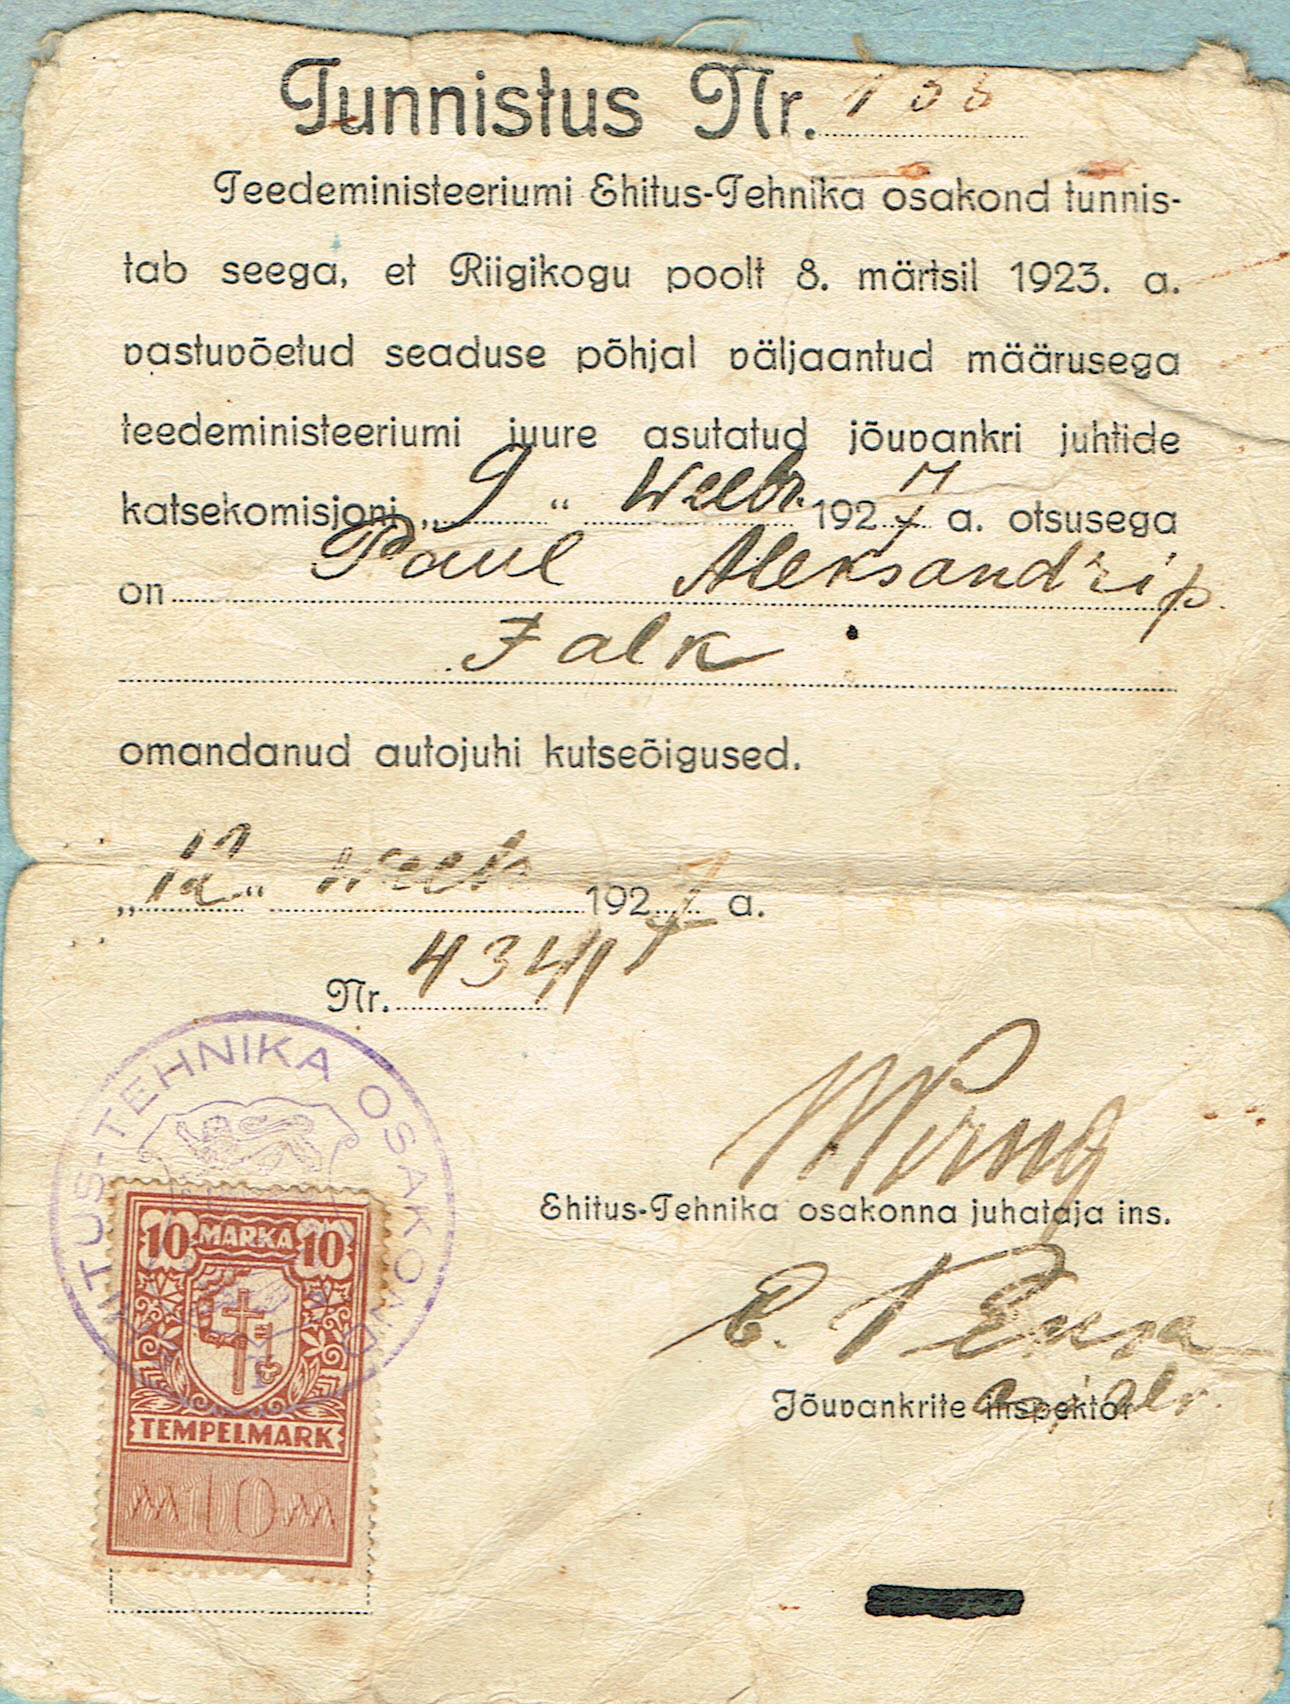 Tunnistus Nr. 188
Teedeministeeriumi Ehitus-Tehnika osakond tunnis-
tab seega, et Riigikogu poolt 8. märtsil 1923. a.
vastuvõetud seaduse põhjal väljaantud määrusega
teedeministeeriumi juure asutatud jõuvankri juhtide
katsekomisjoni „9“ Weebr. 1927 a. otsusega
on Paul Aleksandri p.
Falk
omandanud autojuhi kutseõigused.
„12“ Weeb 1927 a.
Nr. 4341
EHITUS-TEHNIKA OSAKOND
Ehitus-Tehnika osakonna juhataja ins.
10 MARKA 10
E.
Jõuvankrite inspektor
TEMPELMARK
M 10 M